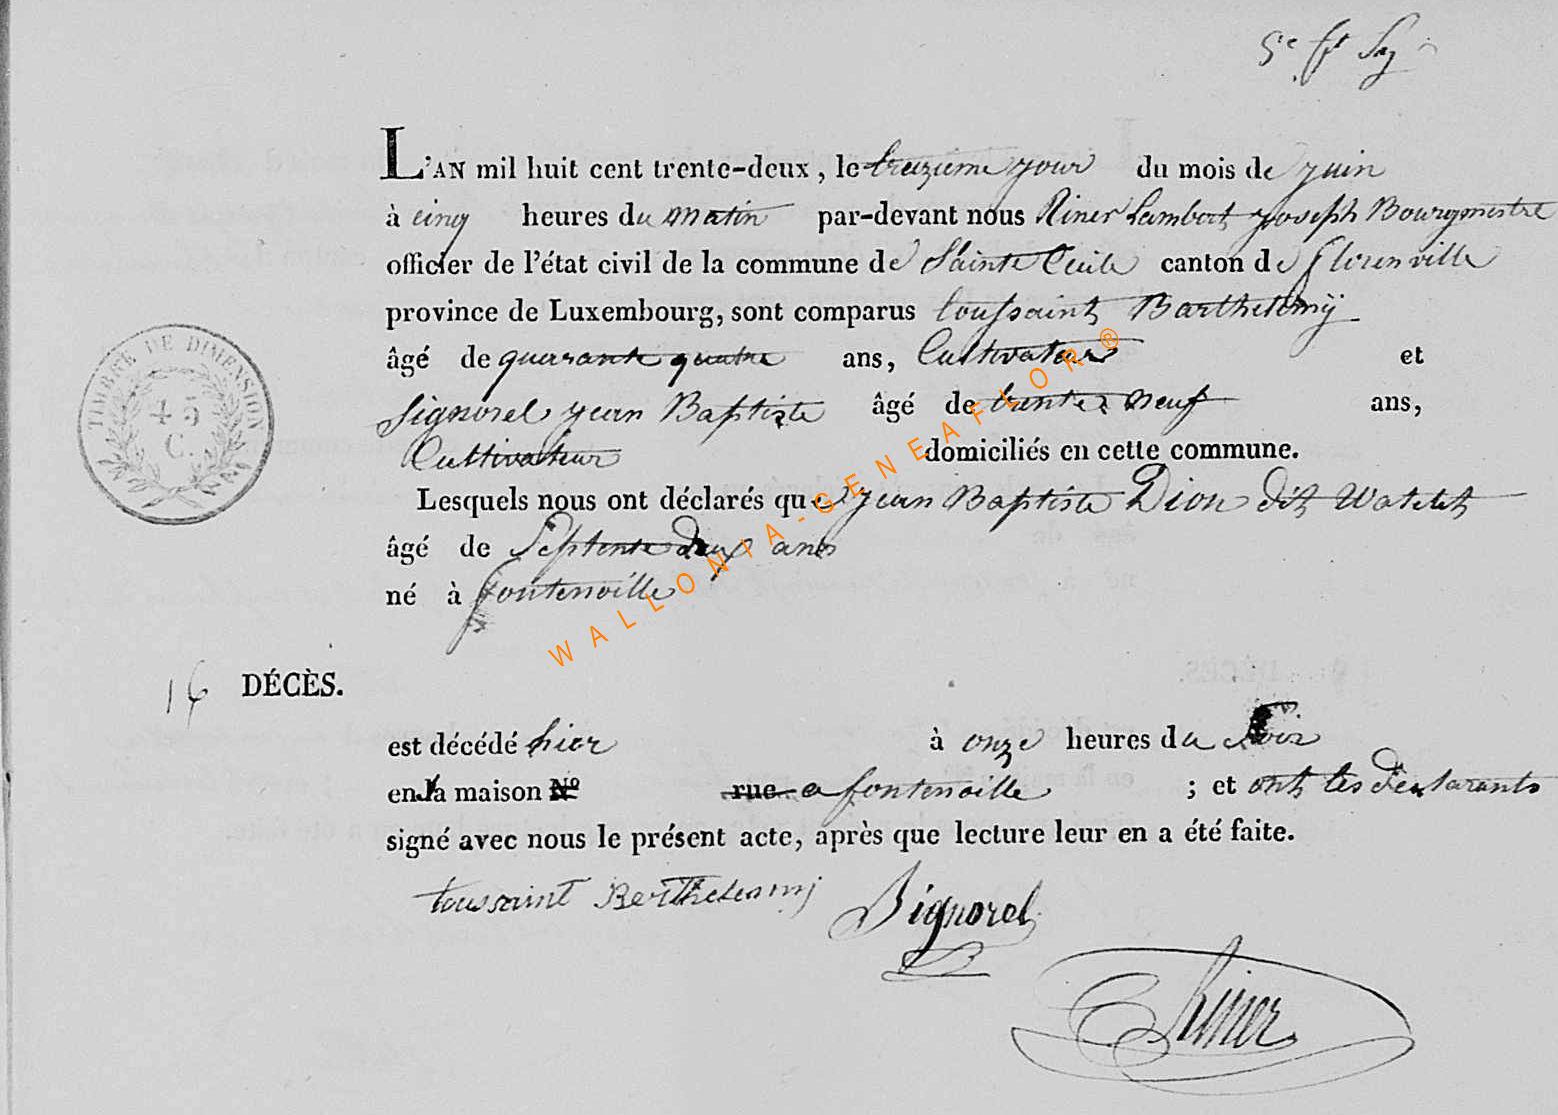 L'AN mil huit cent trente-deux, le treizieme jour du mois de juin
à cinq heures du matin par-devant nous Riner Lambert Joseph Bourgmestre
officier de l'état civil de la commune de Sainte Cecile canton de Florenville
province de Luxembourg, sont comparus toussaint Barthelemÿ
âgé de quarante quatre ans, Cultivateur et
Signorel jean Baptiste âgé de trente neuf ans,
Cultivateur domiciliés en cette commune.
Lesquels nous ont déclarés que jean Baptiste Dion dit Watelet
âgé de Septente deux ans
né à fontenoille
16 DÉCÈS.
est décédé hier à onze heures du Soir
en la maison N° rue a fontenoille ; et ont les déclarants
signé avec nous le présent acte, après que lecture leur en a été faite.
toussaint Berthelemij
Signorel
Riner
TIMBRE DE DIMENSION
45
C.
WALLONIA-GENEAFLOR®